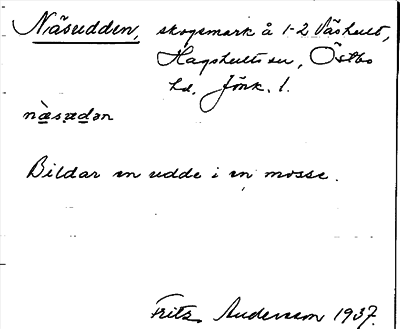 Näsudden, skogsmark å 1-2 Påshult,
Hagshults sn, Östbo
hd. Jönk. l.
næ̀sudən
Bildar en udde i en mosse.
Fritz Andersson 1937.